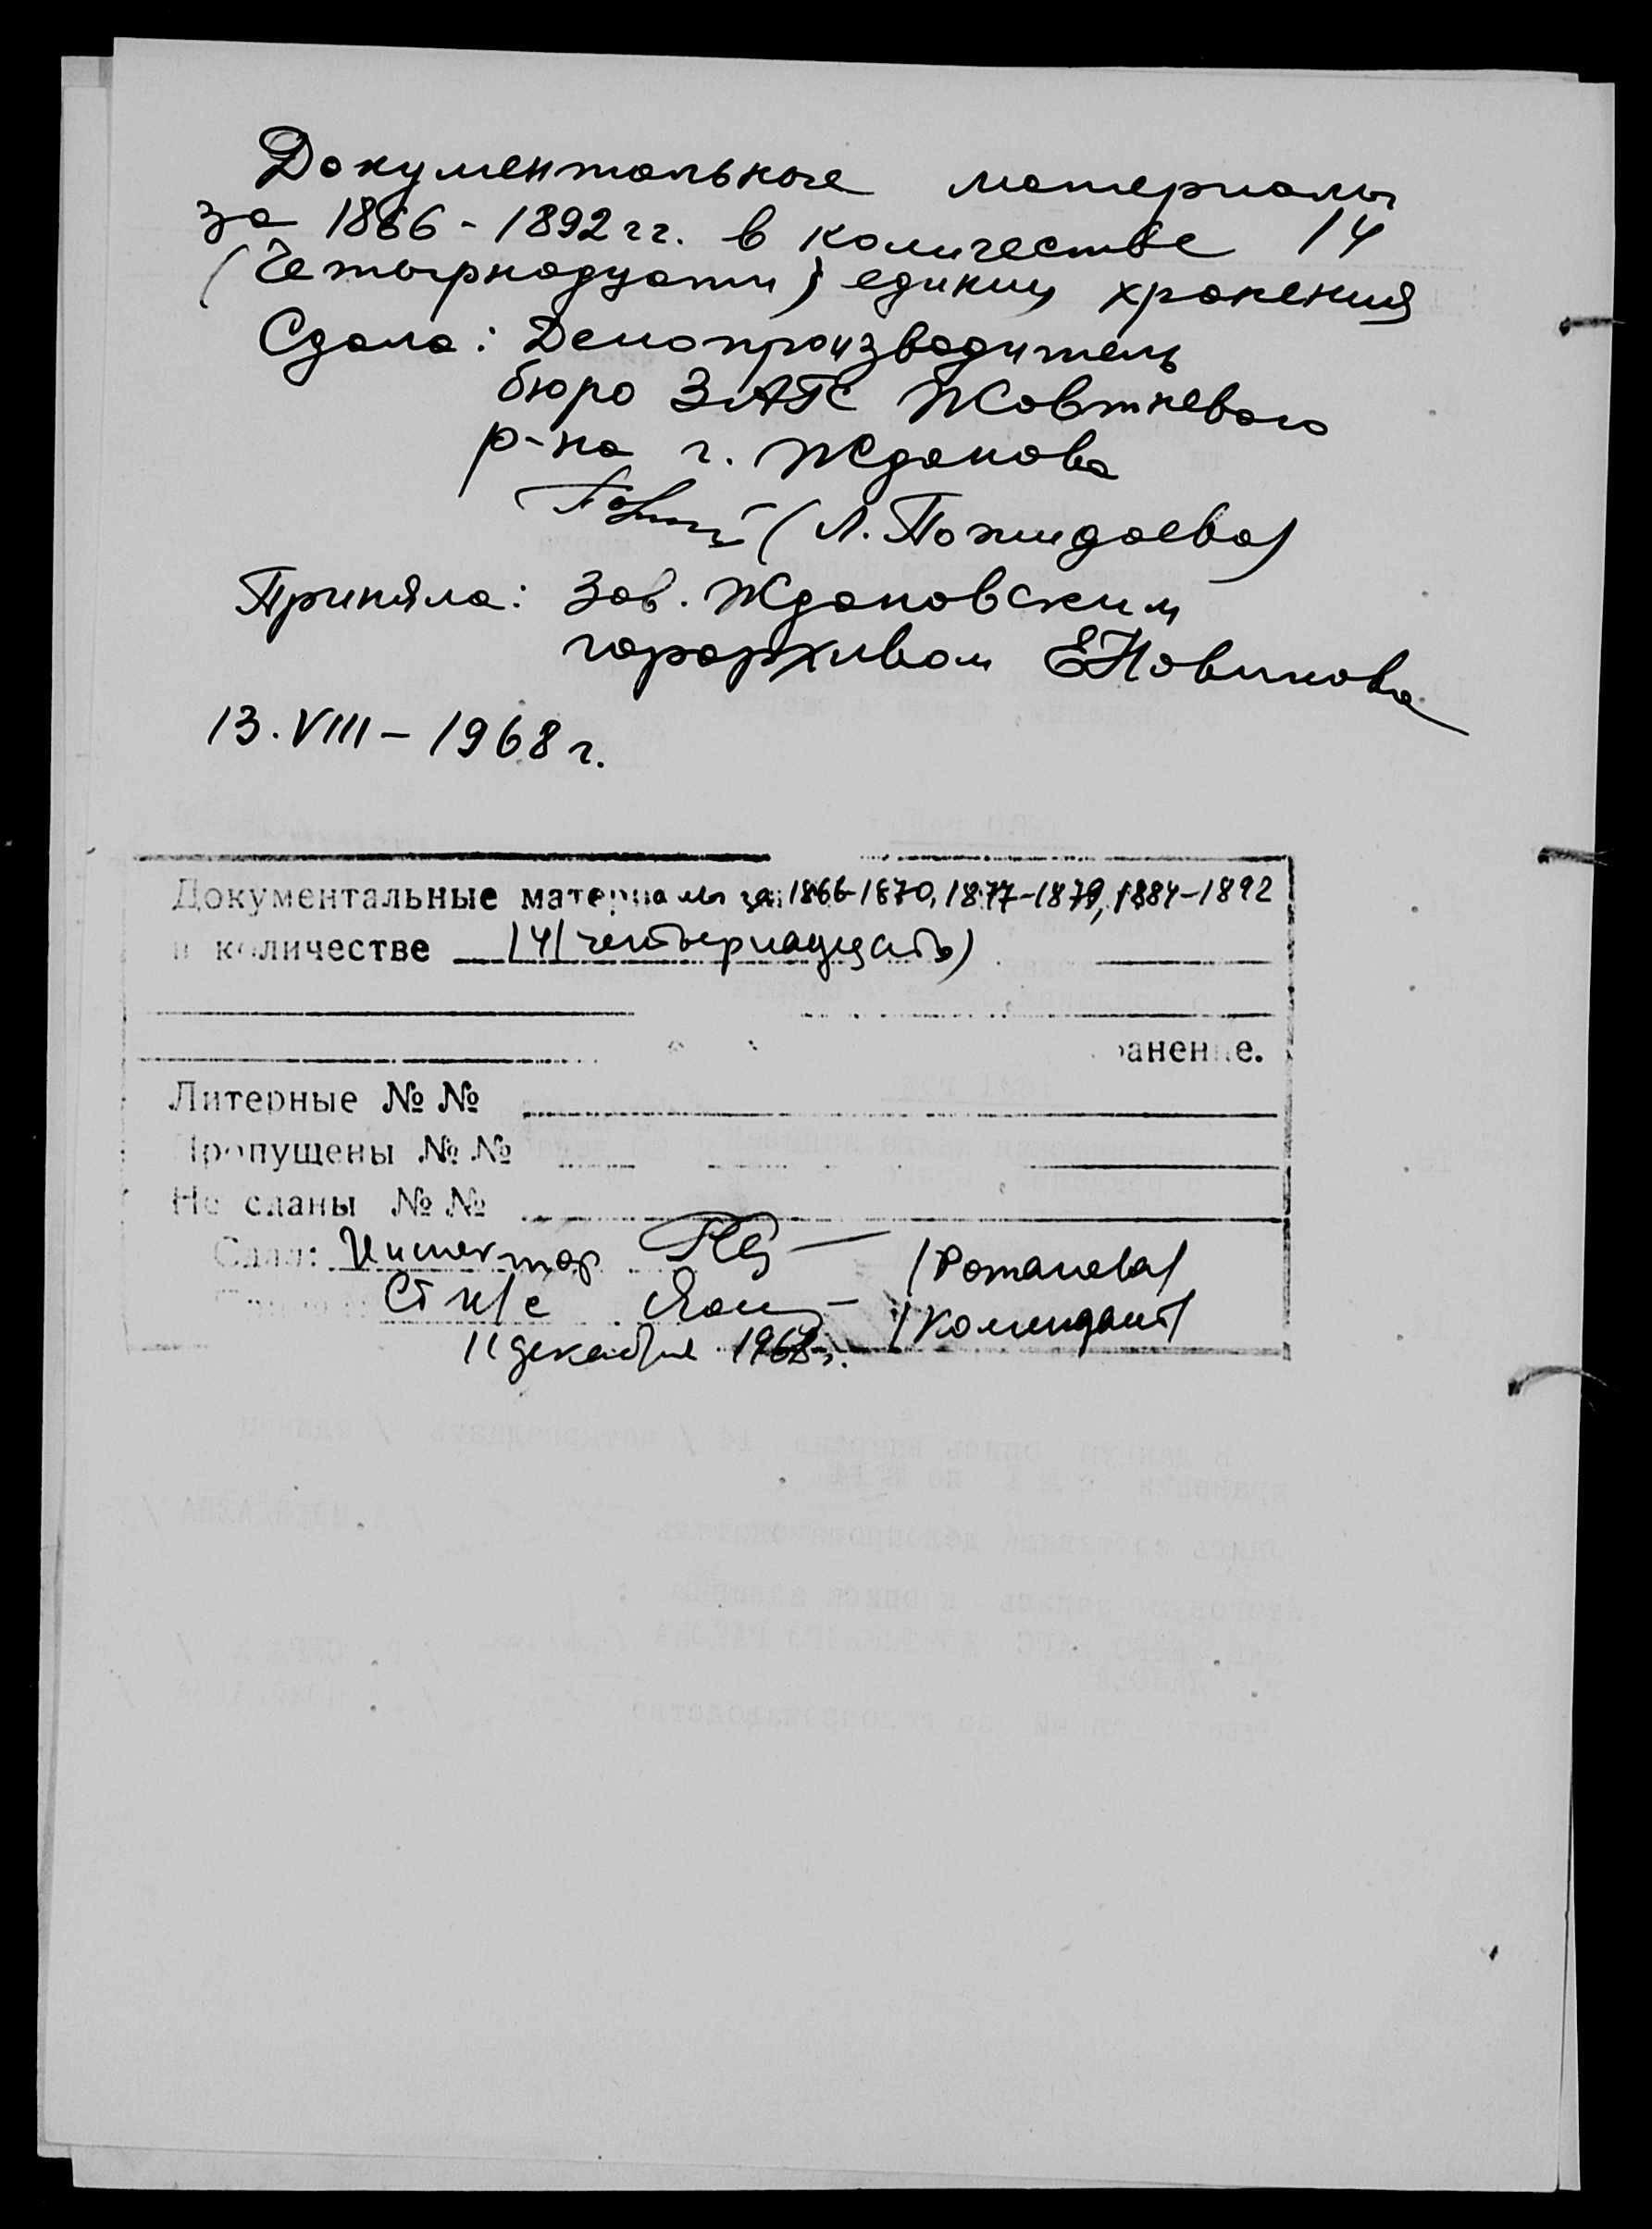 Документальные материалы
за 1866-1892 гг. в количестве 14
(Четырнадцати) единиц хранения
Сдала: Делопроизводитель
бюро ЗАГС Жовтневого
р-на г. Жданова
(Л. Пожидаева)
Приняла: Зав. Ждановским
горархивом ЕНовикова
13.VIII-1968 г.
Документальные материалы за 1866-1870, 1877-1879, 1884-1892
в количестве 14 (четырнадцать)
Литерные №№
Пропущены №№
Не сданы №№
Сдал: Инспектор (Романова)
Ст н/с (Комендант)
11 декабря 1968 г.